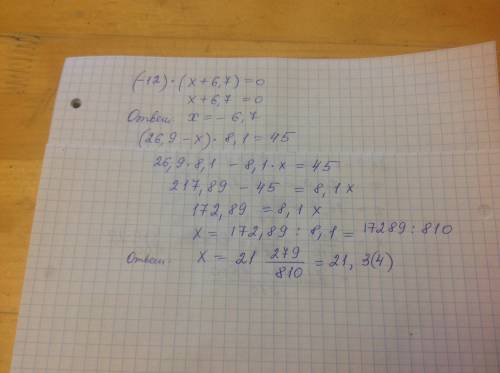 (-12)·(x+6,7)=0
x+6,7=0
Ответ: x=-6,7
(26,9-x)·8,1=45
26,9·8,1-8,1·x=45
217,89-45=8,1x
172,89=8,1x
x=172,89:8,1=17289:810
Ответ: x=21 279/810=21,3(4)